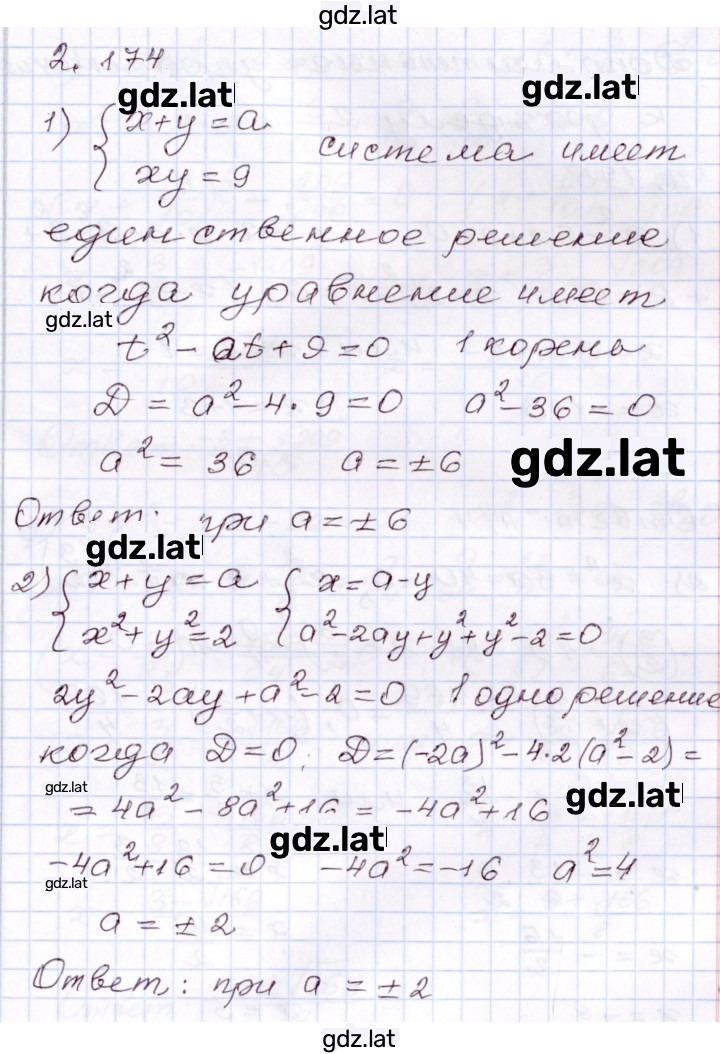 gdz.lat
2.174
gdz.lat gdz.lat
1) { x+y=a
xy=9 система имеет
единственное решение
когда уравнение имеет
gdz.lat
t²-at+9=0 1 корень
D=a²-4·9=0 a²-36=0
a²=36 a=±6 gdz.lat
Ответ: при a=±6
gdz.lat
2) { x+y=a { x=a-y
x²+y²=2 a²-2ay+y²+y²-2=0
2y²-2ay+a²-2=0 1 одно решение
когда D=0; D=(-2a)²-4·2(a²-2)=
gdz.lat
=4a²-8a²+16=-4a²+16 gdz.lat
gdz.lat
-4a²+16=0 -4a²=-16 a²=4
gdz.lat
a=±2
Ответ: при a=±2
gdz.lat